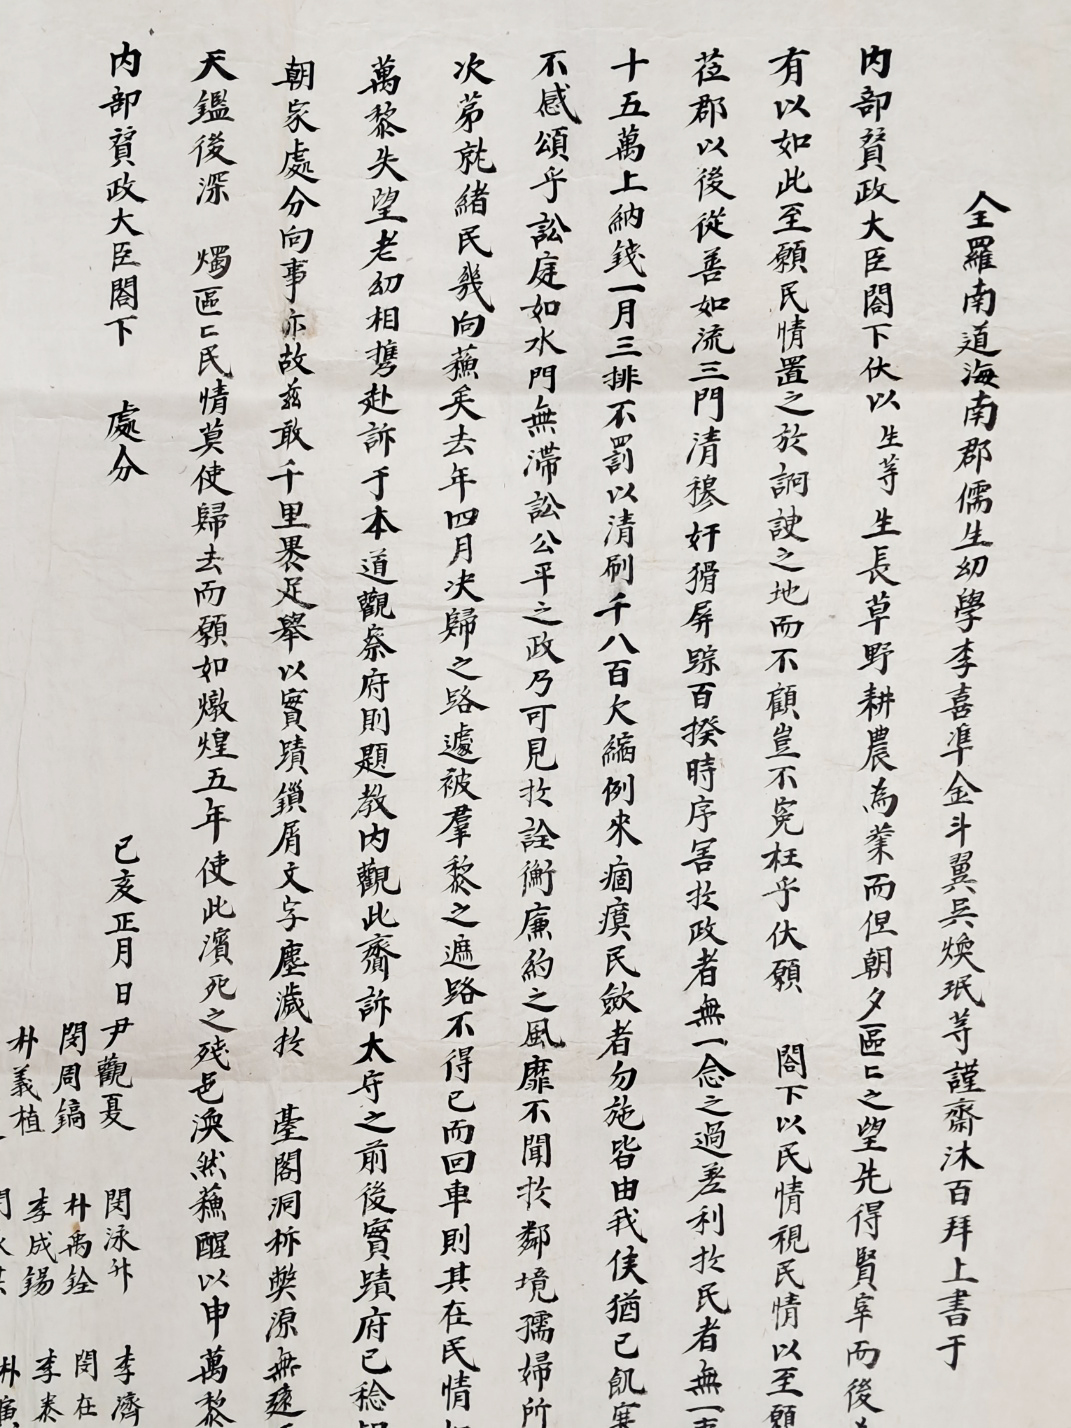 全羅南道海南郡儒生幼學李喜準金斗翼吳煥珉等謹齋沐百拜上書于
內部贊政大臣閤下伏以生等生長草野耕農為業而但朝夕區〻之望先得賢宰而後
有以如此至願民情置之於詗諛之地而不顧豈不冤枉乎伏願 閤下以民情視民情以至願
莅郡以後從善如流三門清穆奸猾屏跡百揆時序害於政者無一念之過差利於民者無一事
十五萬上納錢一月三排不罰以清刷千八百欠縮例來痼瘼民斂者勿施皆由我侯猶己飢寒
不感頌乎訟庭如水門無滯訟公平之政乃可見於詮衡廉約之風靡不聞於鄰境孺婦所
次第就緒民幾向蘇矣去年四月決歸之路遽被羣黎之遮路不得已而回車則其在民情
萬黎失望老幼相携赴訴于本道觀察府則題敎內觀此齊訴太守之前後實蹟府已稔
朝家處分向事亦故玆敢千里裹足擧以實蹟鎖屑文字塵瀆於 臺閣洞柝弊源無遠
天鑑後深 燭區〻民情莫使歸去而願如燉煌五年使此濱死之殘邑渙然蘇醒以申萬黎
內部贊政大臣閤下 處分 己亥正月 日尹觀夏 閔泳升 李濟
閔周鎬 朴禹銓 閔在
朴義植 李成錫 李泰